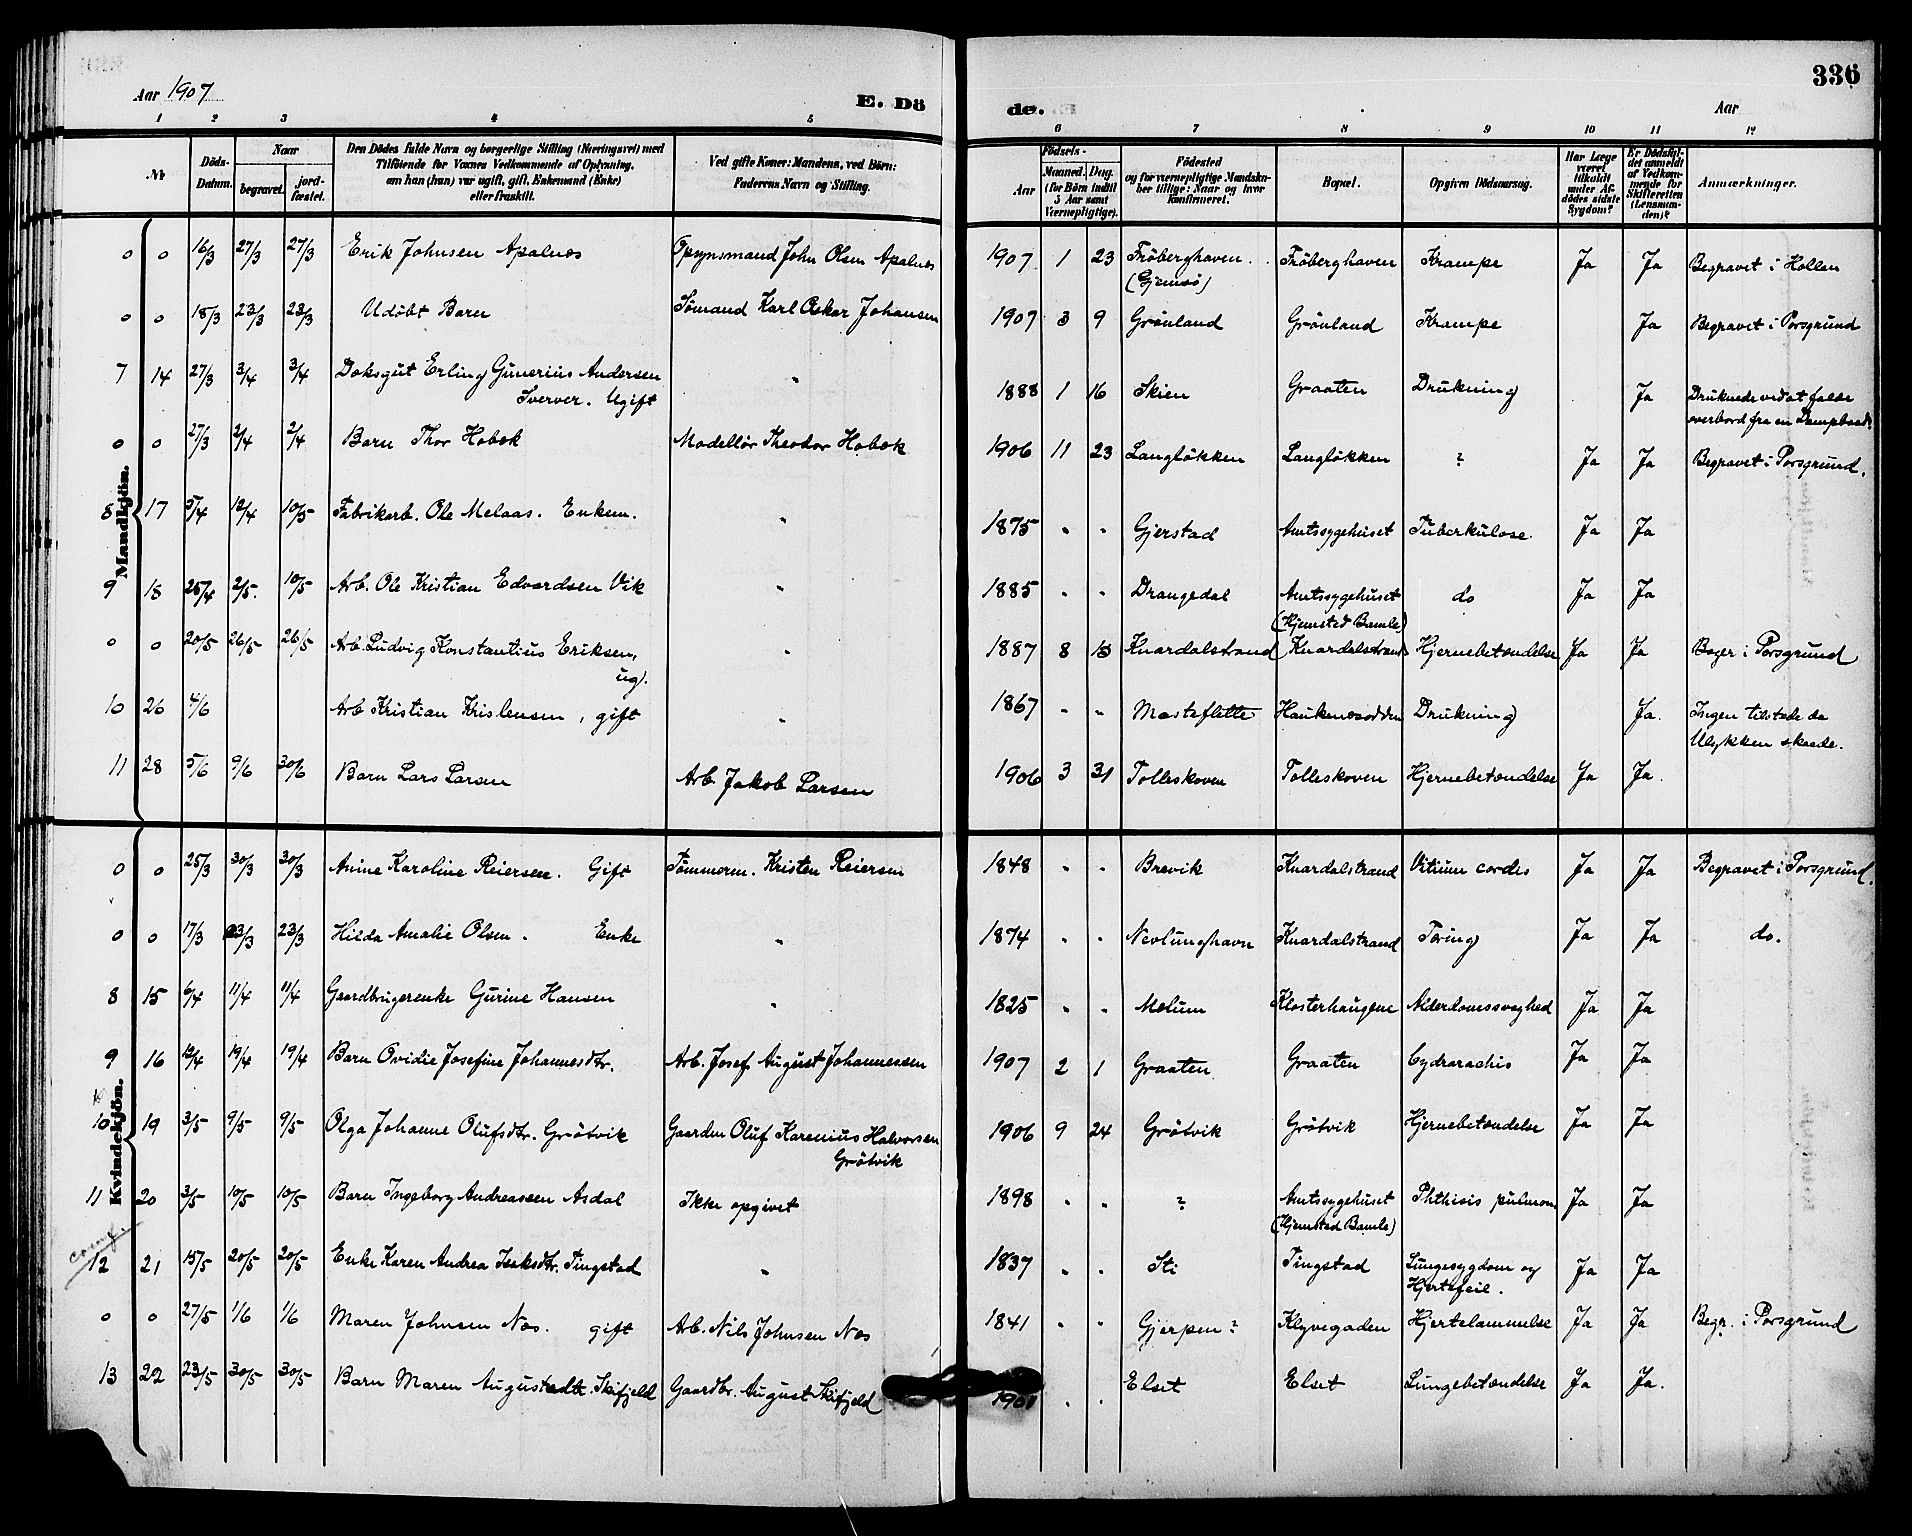 Aar 1907
E. Dö
de.
Aar
336
1 2 3 4 5 6 7 8 9 10 11 12
No
Döds-Datum.
Naar
begravet.
jord-fæstet.
Den Dödes fulde Navn og borgerlige Stilling (Næringsvei) med
Tilföiende for Voxnes Vedkommende af Oplysning,
om han (hun) var ugift, gift, Enkemand (Enke)
eller fraskilt.
Ved gifte Koner: Mandens, ved Börn:
Faderens Navn og Stilling.
Födsels-
Aar
Maaned. Dag.
(for Börn indtil
5 Aar samt
Værnepligtige).
Födested
og for værnepligtige Mandskaber tillige: Naar og hvor
konfirmeret.
Bopæl.
Opgiven Dödsaarsag.
Har Læge været tilkaldt under Afdödes sidste Sygdom?
Er Dödsfaldet anmeldt af Vedkommende for Skifteretten (Lensmanden)?
Anmærkninger.
Mandkjön.
0 0 16/3 27/3 27/3 Erik Johnsen Apalnes Opsynsmand John Olsen Apalnes 1907 1 23 Fröberghaven Fröberghaven Krampe Ja Ja Begravet i Hollen
(Gjemsö)
0 0 18/3 23/3 23/3 Udöbt Barn Sömand Karl Oskar Johansen 1907 3 9 Grönland Grönland Krampe Ja Begravet i Porsgrund
7 14 27/3 3/4 3/4 Doksgut Erling Gunerius Andersen " 1888 1 16 Skien Graaten Drukning Ja Druknede ved at falde
Sverver. Ugift overbord fra en Dampbaad.
0 0 27/3 2/4 2/4 Barn Thor Hobæk Modellör Theodor Hobæk 1906 11 23 Langlökken Langlökken ? Ja Ja Begravet i Porsgrund.
8 17 5/4 12/4 10/5 Fabrikarb. Ole Melaas. Enkem. " 1875 " " Gjerstad Amtssygehuset Tuberkulose. Ja Ja
9 18 25/4 2/5. 10/5 Arb. Ole Kristian Edvardsen Vik " 1885 " " Drangedal Amtssygehuset do Ja Ja
(Hjemsted Bamle)
0 0 20/5 26/5 26/5 Arb. Ludvig Konstantius Eriksen, " 1887 8 18 Knardalstrand Knardalstrand Hjernebetændelse Ja Ja Begr i Porsgrund
ug.
10 26 4/6 Arb Kristian Kristensen, gift " 1867 " " Mosteflette Haukenesodden Drukning Ja. Ingen tilstede da
Ulykken skeede.
11 28 5/6 9/6 30/6 Barn Lars Larsen Arb. Jakob Larsen 1906 3 31 Tolleskoven Tolleskoven Hjernebetændelse Ja Ja.
Kvindekjön.
0 0 25/3 30/3 30/3 Anine Karoline Reiersen. Gift Tömmerm. Kristen Reiersen 1848 " " Brevik Knardalstrand Vitium cordis Ja Ja Begravet i Porsgrund.
0 0 17/3 23/3 23/3 Hilda Amalie Olsen. Enke " 1874 " " Nevlunghavn Knardalstrand Tæring Ja Ja do.
8 15 6/4 11/4 11/4 Gaardbrugerenke Gurine Hansen " 1825 " " Melum Klosterhaugene Alderdomssvaghed Ja Ja
9 16 12/4 19/4 19/4 Barn Ovidie Josefine Johannesdtr. Arb. Josef August Johannessen 1907 2 1 Graaten Graaten Cydrorachis Ja Ja
10 19 3/5 9/5 9/5 Olga Johanne Olufsdtr. Grötvik Gaardm Oluf Karenius Halvorsen 1906 9 24 Grötvik Grötvik Hjernebetændelse Ja Ja
Grötvik
11 20 3/5 10/5 10/5 Barn Ingeborg Andreassen Asdal Ikke opgivet 1898 " " ? Amtssygehuset Phthisis pulmon Ja Ja
(Hjemsted Bamle)
conf.
12 21 15/5 20/5 20/5 Enke Karen Andrea Isaksdtr. Tingstad " 1837 " " Sti Tingstad Lungesygdom og Ja Ja
Hjertefeil.
0 0 27/5 1/6 1/6 Maren Johnsen Næs. gift Arb. Nils Johnsen Næs 1841 " " Gjerpen? Klyvegaden Hjertelammelse Ja Ja Begr. i Porsgrund
13 22 23/5 30/5 30/5 Barn Maren Augustadtr. Skifjeld Gaardbr. August Skifjeld 1901 " " Elset Elset Lungebetændelse Ja Ja.